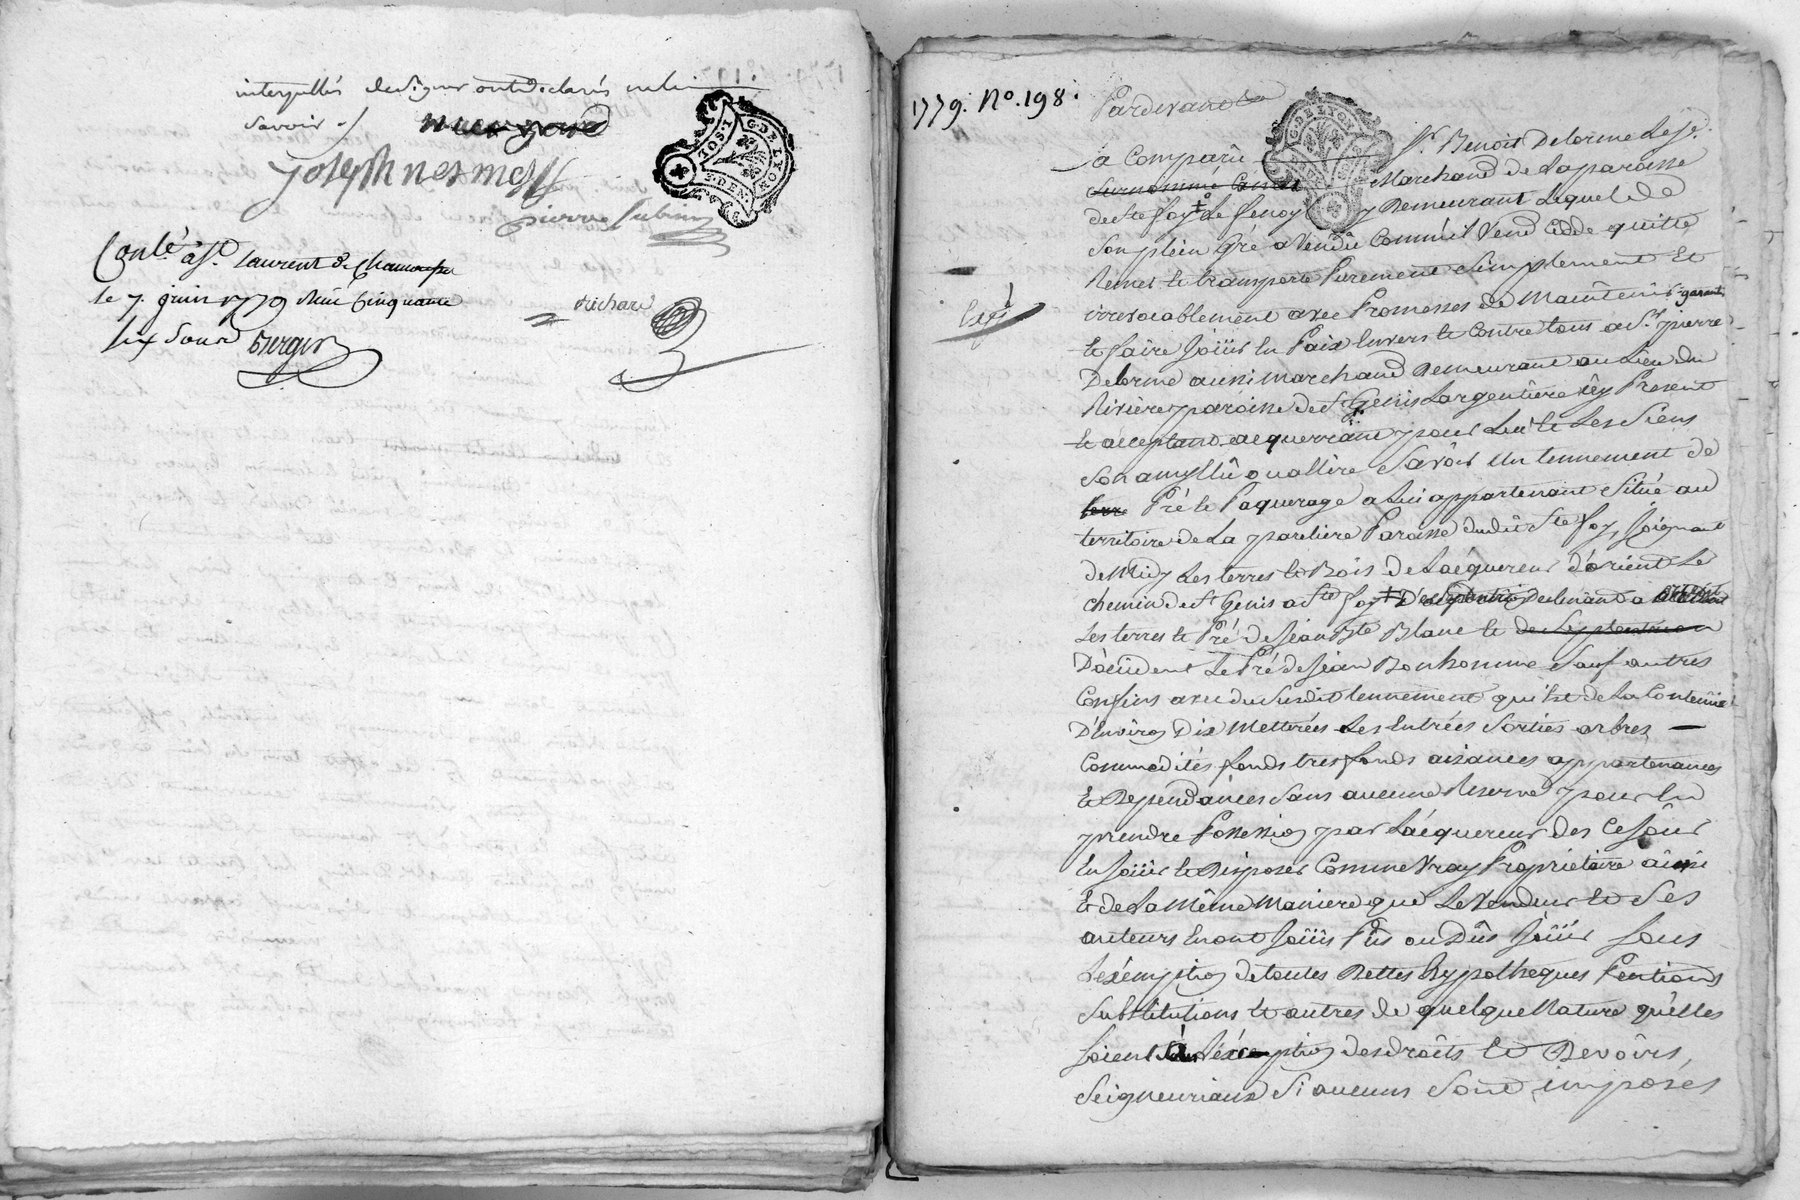 interpellés de signer ont déclarés ne le
savoir ./.
Joseph nesmes
pierre
Conlé. à St. Laurent de Chamousset
le 7. juin 1779 Reçu Cinquante
six sous
Richard
G. DE LYON
1779. No. 198.
Pardevant
a Comparû Sr. Benoit Delorme Le Je.
surnommé Marchand de La paroisse
de Ste foy Le y Demeurant Lequel de
Son plein Gré a Vendû Comme il Vend Cèdde quitte
Remet et transporte Purement Simplement Et
irrevocablement avec Promesses de Maintenir garantir
et faire Joüir En Paix Envers et Contre tous a Sr. pierre
Delorme aussi marchand Demeurant au Lieu du
Rivière paroisse de St Genis Largentière icy Present
et acceptant acquerrant pour Lui et Les Siens
Son amy Elû ou a Elire Savoir Un tennement de
terre Pré et Paquerage a Lui appartenant Situé au
territoire de La pareliere Paroisse dudit Ste foy, Joignant
de Midy Les terres et Bois de L'acquereur d'orient Le
chemin de St Genis a Ste foy Declinant a
Les terres et Pré de Jean Bte Blanc et de Septentrion
D'occident Le Pré de Jean Bonhomme Sauf autres
Confins avec du Susdit tennement qui Est de La Contenüe
D'Environ Dix Metterées Les Entrées Sorties arbres
Commodités fonds tres fonds aisances appartenances
Et Dependances Sans aucune Reserve pour En
prendre Possession par L'acquereur des Ce Jour
En Joüir et Disposer Comme Vray Propriétaire ainsi
Et de La Même Maniere que Le Vendeur et Ses
auteurs En ont Joüis Pûs ou Dûs Joüir Sous
L'exemption de toutes Dettes Hypotheques Pentions
Substitutions et autres de quelque Nature qu'elles
Soient à L'exception des droits et Devoirs
Seigneuriaux Si aucuns Sont imposés